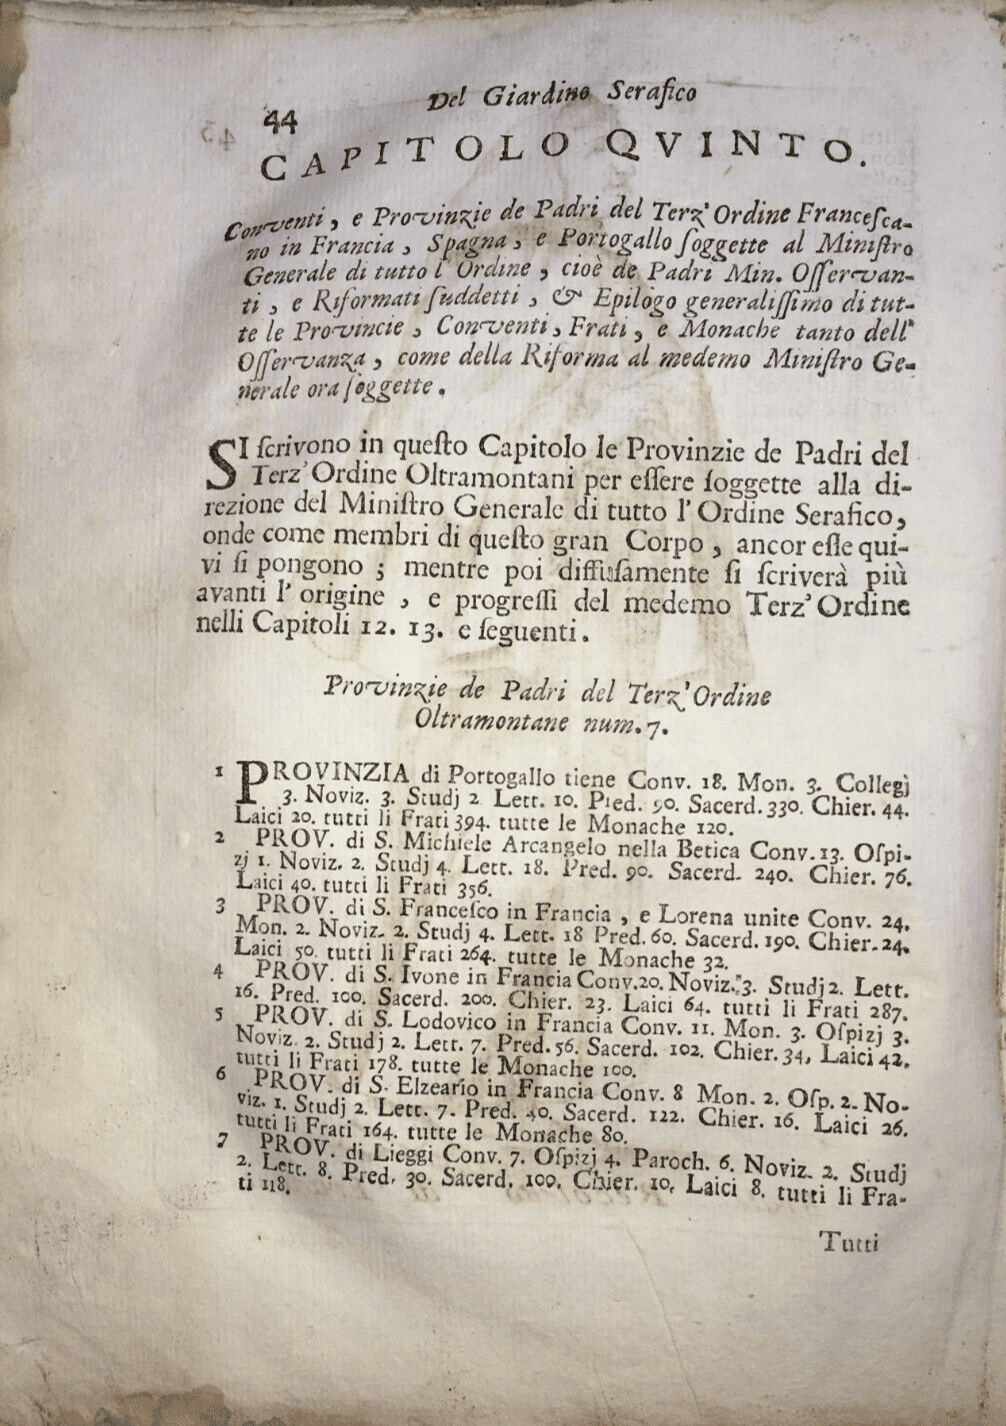 Del Giardino Serafico
44
CAPITOLO QVINTO.
Conventi, e Provinzie de Padri del Terz' Ordine Francesca-
no in Francia, Spagna, e Portogallo ſoggette al Miniſtro
Generale di tutto l' Ordine, cioè de Padri Min. Oſſervan-
ti, e Riformati ſuddetti, & Epilogo generaliſſimo di tut-
te le Provincie, Conventi, Frati, e Monache tanto dell'
Oſſervanza, come della Riforma al medemo Miniſtro Ge-
nerale ora ſoggette.
SI ſcrivono in queſto Capitolo le Provinzie de Padri del
Terz' Ordine Oltramontani per eſſere ſoggette alla di-
rezione del Miniſtro Generale di tutto l' Ordine Serafico,
onde come membri di queſto gran Corpo, ancor eſſe qui-
vi ſi pongono; mentre poi diffuſamente ſi ſcriverà più
avanti l' origine, e progreſſi del medemo Terz' Ordine
nelli Capitoli 12. 13. e ſeguenti.
Provinzie de Padri del Terz' Ordine
Oltramontane num. 7.
1 PROVINZIA di Portogallo tiene Conv. 18. Mon. 3. Collegj
3. Noviz. 3. Studj 2 Lett. 10. Pred. 90. Sacerd. 330. Chier. 44.
Laici 20. tutti li Frati 394. tutte le Monache 120.
2 PROV. di S. Michiele Arcangelo nella Betica Conv. 13. Oſpi-
zj 1. Noviz. 2. Studj 4. Lett. 18. Pred. 90. Sacerd. 240. Chier. 76.
Laici 40. tutti li Frati 356.
3 PROV. di S. Franceſco in Francia, e Lorena unite Conv. 24.
Mon. 2. Noviz. 2. Studj 4. Lett. 18 Pred. 60. Sacerd. 190. Chier. 24.
Laici 50. tutti li Frati 264. tutte le Monache 32.
4 PROV. di S. Ivone in Francia Conv. 20. Noviz. 3. Studj 2. Lett.
16. Pred. 100. Sacerd. 200. Chier. 23. Laici 64. tutti li Frati 287.
5 PROV. di S. Lodovico in Francia Conv. 11. Mon. 3. Oſpizj 3.
Noviz. 2. Studj 2. Lett. 7. Pred. 56. Sacerd. 102. Chier. 34, Laici 42.
tutti li Frati 178. tutte le Monache 100.
6 PROV. di S. Elzeario in Francia Conv. 8 Mon. 2. Oſp. 2. No-
viz. 1. Studj 2. Lett. 7. Pred. 40. Sacerd. 122. Chier. 16. Laici 26.
tutti li Frati 164. tutte le Monache 80.
7 PROV. di Lieggi Conv. 7. Oſpizj 4. Paroch. 6. Noviz. 2. Studj
2. Lett. 8. Pred. 30. Sacerd. 100. Chier. 10. Laici 8. tutti li Fra-
ti 118.
Tutti